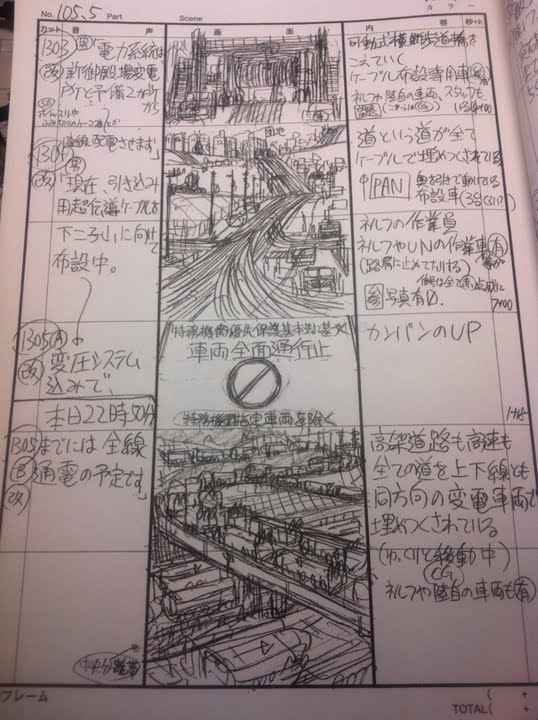 No. 105.5 Part Scene
カット 音 声 画 面 内 容 秒+k
1303
改
電力系統は
新御殿場変電
所と予備2か所
から
可動式横断歩道橋を
こえていく
ケーブル布設専用車
直線配電させます」
1304
改
「現在、引き込み
用超伝導ケーブルを
下二子山に向けて
布設中。
団地
道という道が全て
ケーブルで埋めつくされている
PAN
布設車(3台ぐらい?)
ネルフの作業員
ネルフやUNの作業車(有)
(路肩に止めてたりする)
参 写真有り.
1305A
改
変圧システム
込みで、
特務機関優先保護基本法に基き
車両全面通行止
特務機関指定車両を除く
カンバンのUP
本日22時50分
1305
B
改
までには全線
通電の予定です」
高架道路も高速も
全ての道を上下線とも
同方向の変電車両で
埋めつくされている
(ゆっくりと移動中)
CG
ネルフや陸自の車両も(有)
中央分離帯
フレーム
TOTAL( +